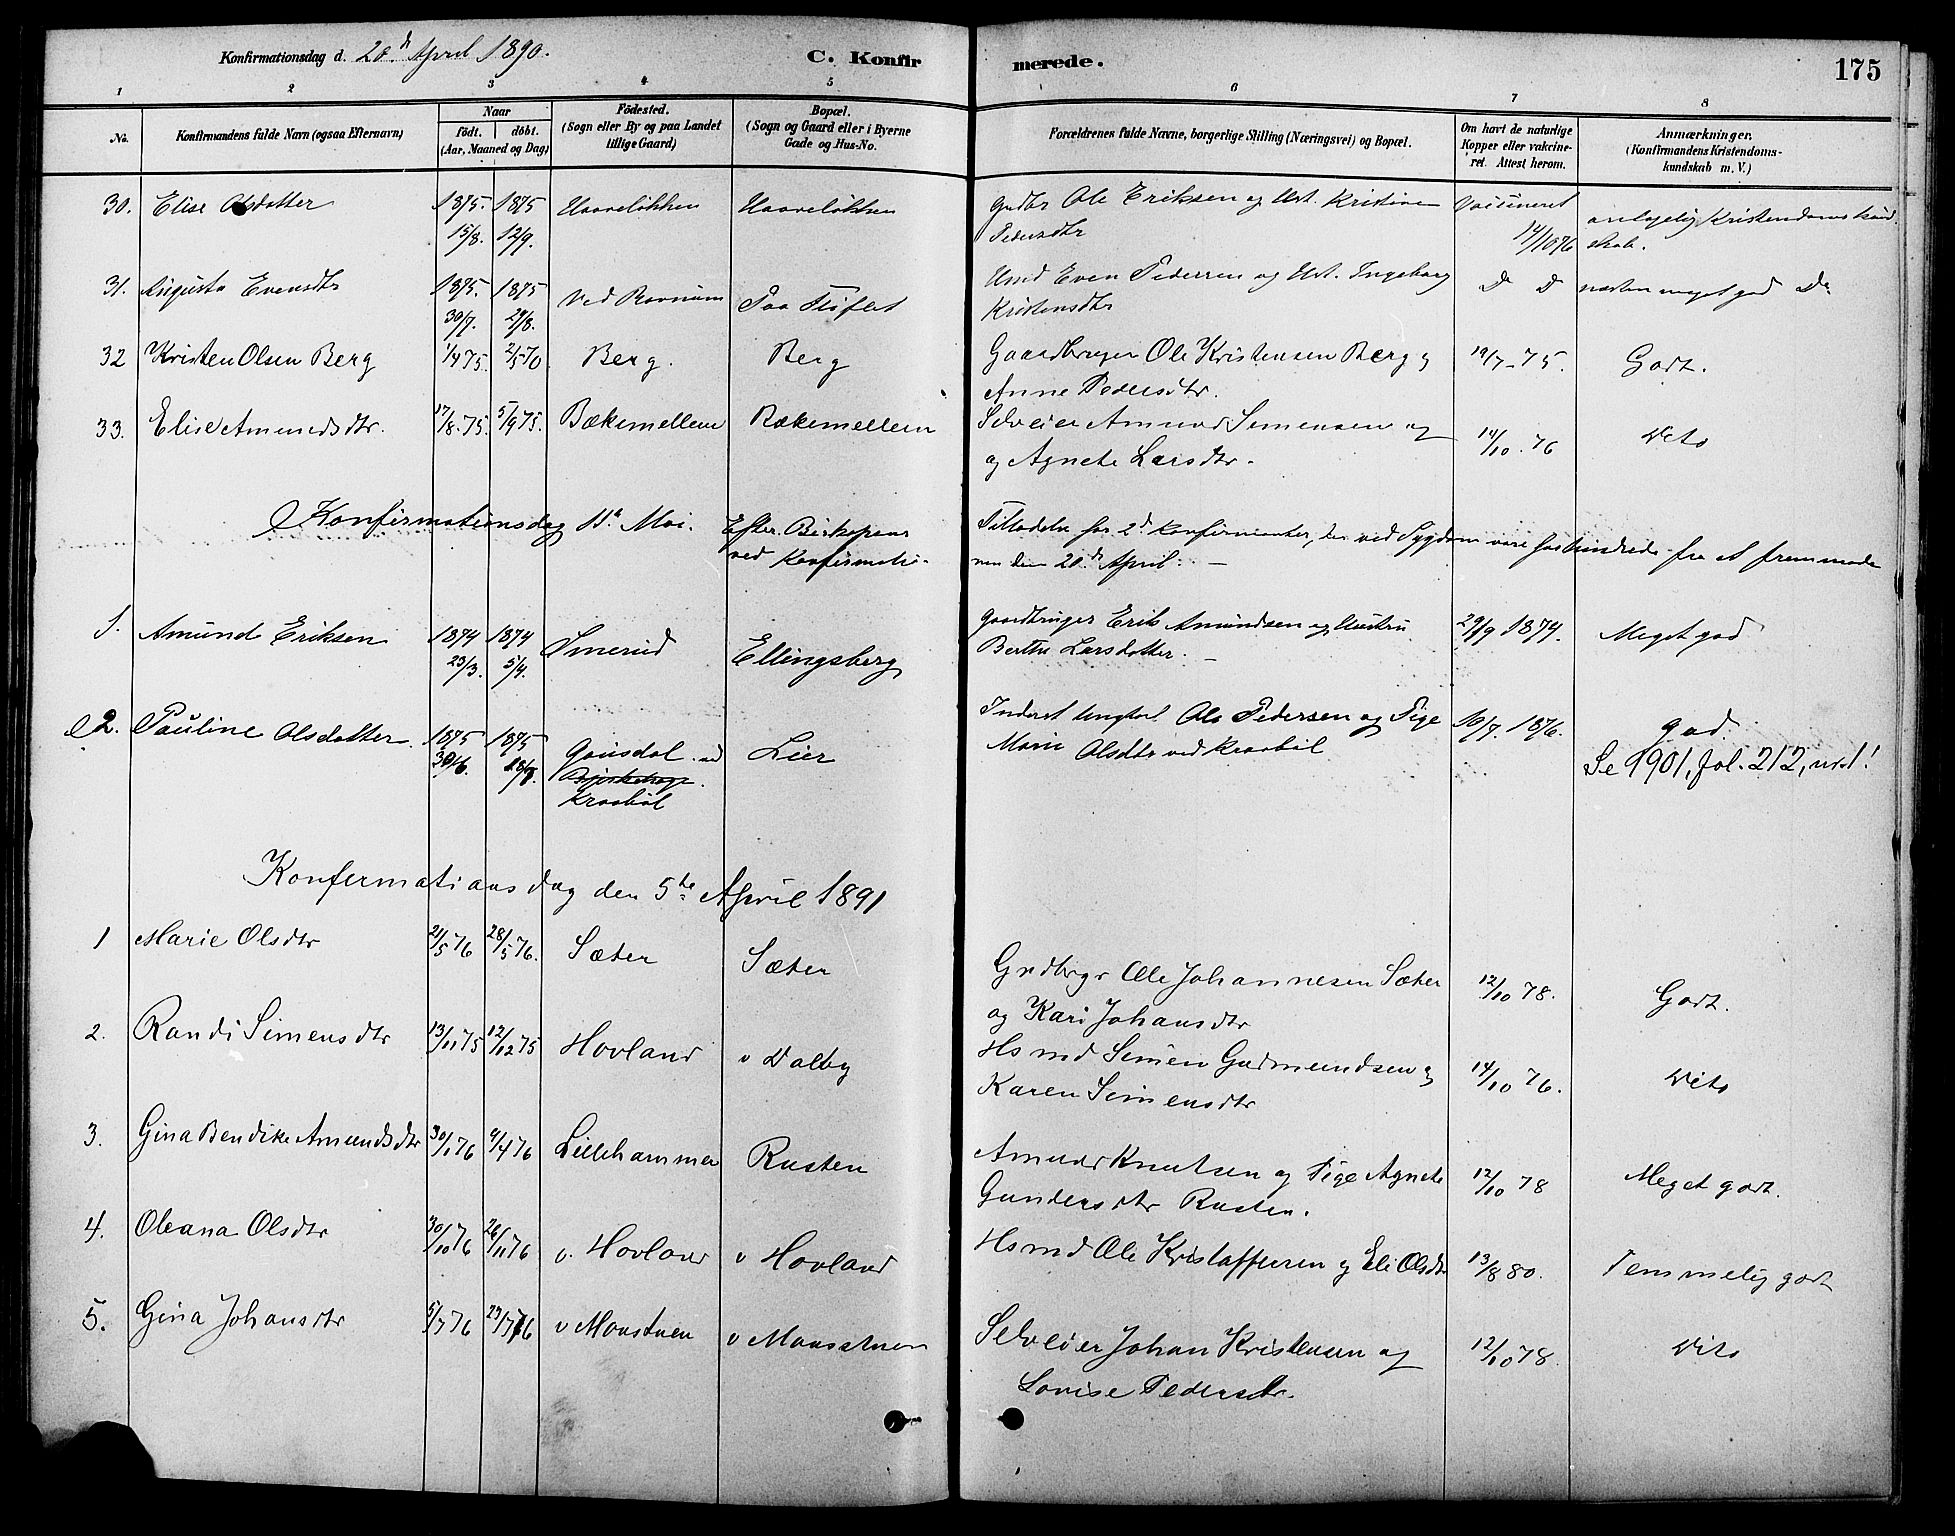 Konfirmationsdag d. 20de April 1890.
C. Konfirmerede.
175
1 2 3 4 5 6 7 8
No. Konfirmandens fulde Navn (ogsaa Efternavn)
Naar
födt. döbt.
(Aar, Maaned og Dag)
Födested.
(Sogn eller By og paa Landet
tillige Gaard)
Bopæl.
(Sogn og Gaard eller i Byerne
Gade og Hus-No.
Forældrenes fulde Navne, borgerlige Stilling (Næringsvei) og Bopæl.
Om havt de naturlige
Kopper eller vakcine-
ret. Attest herom.
Anmærkninger.
(Konfirmandens Kristendoms-
kundskab m. V.)
30. Elise Olsdotter 1875. 15/8. 1875 12/9. Haaveløkken Haaveløkken
Ole Eriksen og Hst. Kristine
Pedersdtr
Vaccineret
14/10 76
antagelig Kristendomskund
skab.
31. Augusta Evensdtr 1875. 30/7. 1875 29/8. ved Paa
Even Pedersen og Hst. Ingeborg
Kristensdtr
Do Do
næsten meget god Do
32 Kristen Olsen Berg 1/4 75. 2/5 70 Berg. Berg
Gaardbruger Ole Kristensen Berg og
Anne Pedersdtr.
19/7-75. Godt.
33. Elise Amundsdtr. 17/8.75. 5/9 75. Bækemellem Bækemellem
Selveier Amund Simensen og
og Agnete Larsdtr.
14/10. 76 Dito
Konfirmationsdag 11te Mai. Efter Biskopens
ved Konfirmatio-
Tilladelse for 2de Konfirmanter, der ved Sygdom vare forhindrede fra at fremmøde
nen den 20de April. —
1. Amund Eriksen 1874 23/3. 1874 5/4. Smerud Ellingsberg
Gaardbruger Erik Amundsen og Hustru
Berthe Larsdotter. —
29/9 1874. Meget god
2. Pauline Olsdotter. 1875 30/6. 1875 18/7. Gausdal
Kraabøl
Lier
Inderst Ungkarl Ole Pedersen og Pige
Marie Olsdtr ved Kraabøl
10/7. 1876. god.
Se 1901, fol. 212, nr. 1!
Konfermationsdag den 5te April 1891
1 Marie Olsdtr 21/5 76 28/5 76. Sæter Sæter
Grdbrgr Ole Johannesen Sæter
og Kari Johansdtr
12/10 78. Godt.
2. Randi Simensdtr 13/11 75 12/12 75 Hovland v Dalby
Hsmd Simen Gudmundsen og
Karen Simensdtr
14/10 76. Dito
3. Gina Bendike Amundsdtr 30/1 76 9/4 76 Lillehammer Rusten
Amund Knutsen og Pige Agnete
Gundersdtr Rusten.
12/10 78 Meget godt.
4. Oleana Olsdtr 30/10 76 26/11 76 v. Hovland v Hovland
Hsmd Ole Kristoffersen og Eli Olsdtr
13/8 80. Temmelig godt
5. Gina Johansdtr 5/7 76 23/7 76 v Maastuen v Maastuen
Selveier Johan Kristensen og
Lovise Pedersdtr.
12/10 78. Dito